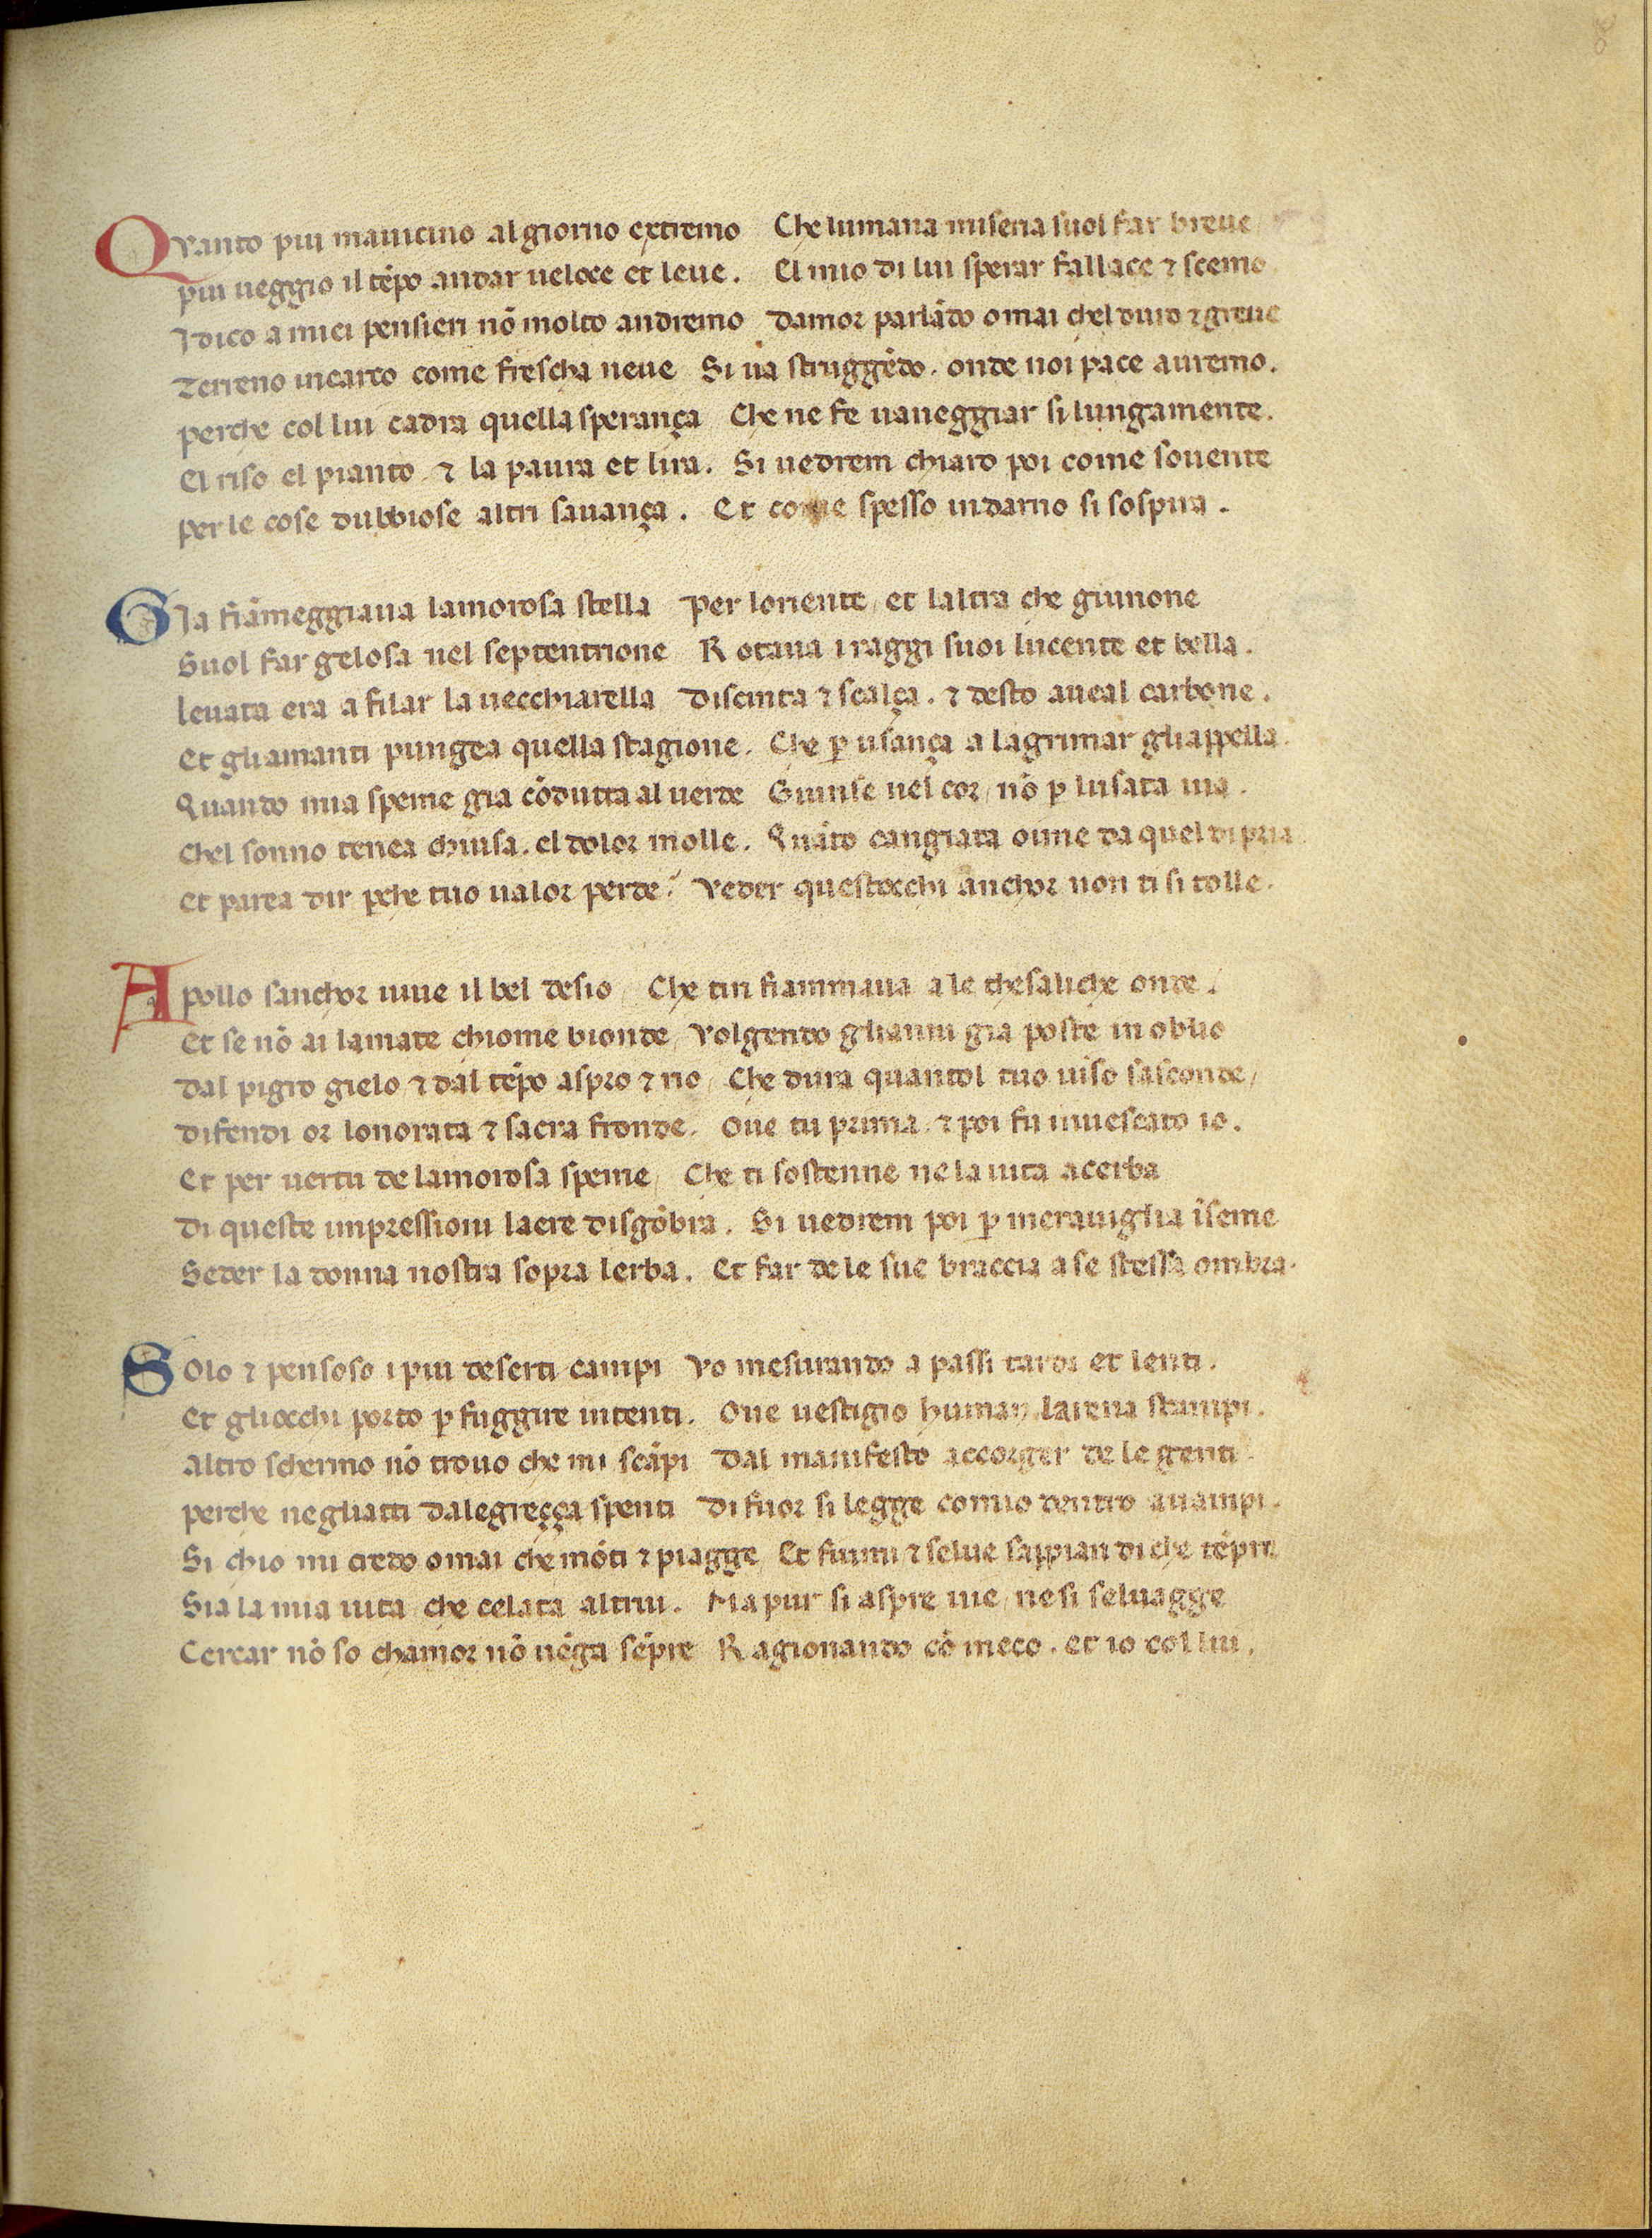 Qvanto piu mauicino al giorno extremo Che lumana miseria suol far breue
piu ueggio il tēpo andar ueloce et leue. El mio di lui sperar fallace ⁊ scemo.
J dico a miei pensieri nō molto andremo damor parlādo omai chel duro ⁊ greue
Terreno incarco come frescha neue Si ua struggēdo. onde noi pace auremo.
perche col lui cadra quella sperança Che ne fe uaneggiar si lungamente.
El riso el pianto, ⁊ la paura et lira. Si uedrem chiaro poi come souente
per le cose dubbiose altri sauança. Et come spesso indarno si sospira.
Gia fiāmeggiaua lamorosa stella per loriente, et laltra che giunone
Suol far gelosa nel septentrione Rotaua i raggi suoi lucente et bella.
leuata era a filar la uecchiarella discinta ⁊ scalça. ⁊ desto aueal carbone.
Et gliamanti pungea quella stagione. Che ꝑ usança a lagrimar gliappella.
Quando mia speme gia cōdutta al uerde Giunse nel cor, nō ꝑ lusata uia.
Chel sonno tenea chiusa. el dolor molle. Quāto cangiata oime da quel di pria.
Et parea dir ꝑche tuo ualor perde? Veder questocchi anchor non ti si tolle.
Apollo sanchor uiue il bel desio, Che tin fiammaua a le thesaliche onde.
Et se nō ai lamate chiome bionde, Volgendo glianni gia poste in oblio
dal pigro gielo, ⁊ dal tēpo aspro ⁊ rio, Che dura quantol tuo uiso sasconde,
difendi or lonorata ⁊ sacra fronde. Oue tu prima, ⁊ poi fu inuescato io.
Et per uertu de lamorosa speme, Che ti sostenne ne la uita acerba
di queste impressioni laere disgōbra. Si uedrem poi ꝑ merauiglia īseme
Seder la donna nostra sopra lerba. Et far de le sue braccia a se stessa ombra.
Solo ⁊ pensoso i piu deserti campi Vo mesurando a passi tardi et lenti.
Et gliocchi porto ꝑ fuggire intenti. Oue uestigio human larena stampi.
Altro schermo nō trouo che mi scāpi dal manifesto accorger de le genti.
perche negliatti dalegreçça spenti di fuor si legge comio dentro auampi.
Si chio mi credo omai che mōti ⁊ piagge, Et fiumi ⁊ selue sappian di che tēpre
Sia la mia uita, che celata altrui. Ma pur si aspre uie, ne si seluagge
Cercar nō so chamor nō uēga sēpre Ragionando cō meco. et io col lui.